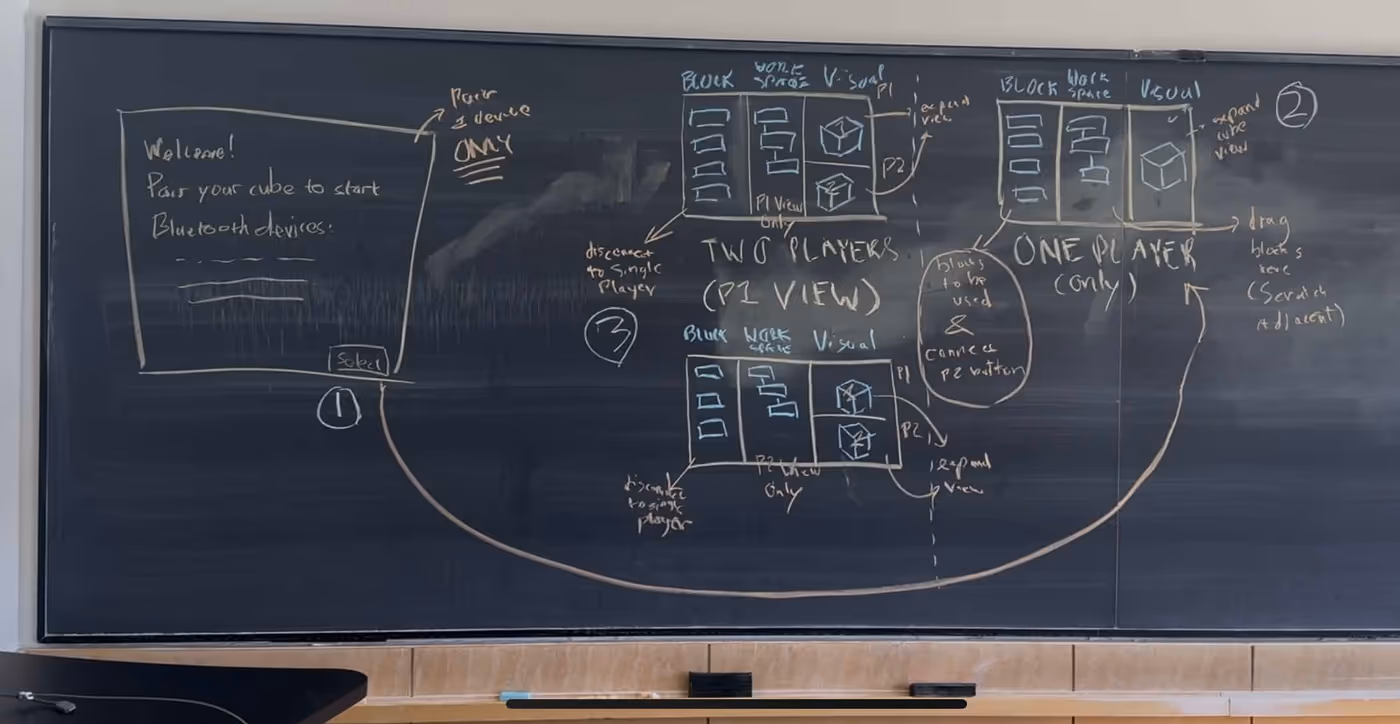 Welcome!
Pair your cube to start
Bluetooth devices:
Select
①
Pair
1 device
ONLY
BLOCK
WORK
SPACE
Visual
P1
P2
expand
view
1
2
P1 View
Only
disconnect
to single
player
TWO PLAYERS
(P1 VIEW)
③
BLOCK
WORK
SPACE
Visual
P1
P2
1
2
P2 View
Only
expand
view
disconnect
to single
player
BLOCK
WORK
SPACE
Visual
②
expand
cube
view
ONE PLAYER
(only)
blocks
to be
used
&
connect
P2 button
drag
blocks
here
(Scratch
Adjacent)